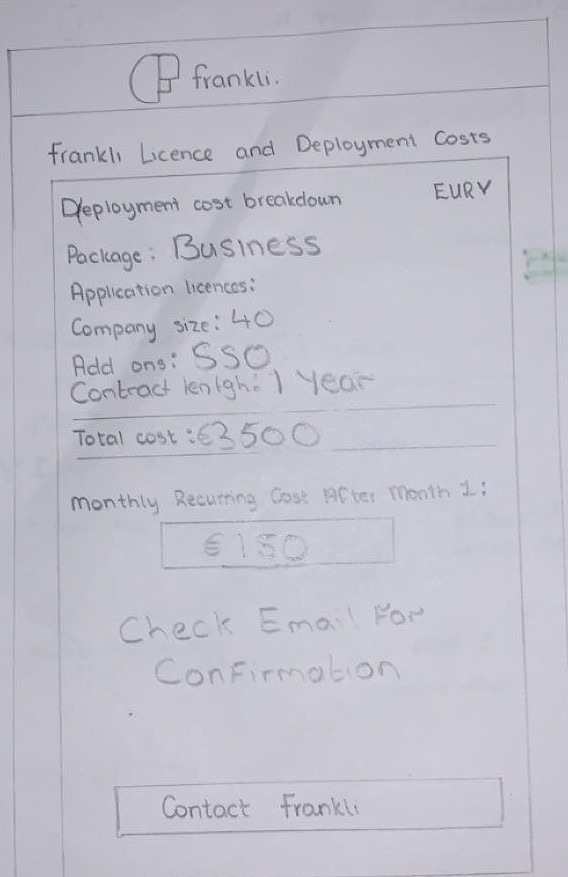 frankli.
frankli Licence and Deployment Costs
Deployment cost breakdown EURY
Package: Business
Application licences:
Company size: 40
Add ons: SSO
Contract lentgh: 1 Year
Total cost: €3500
Monthly Recurring Cost After Month 1:
€150
Check Email For
Confirmation
Contact frankli